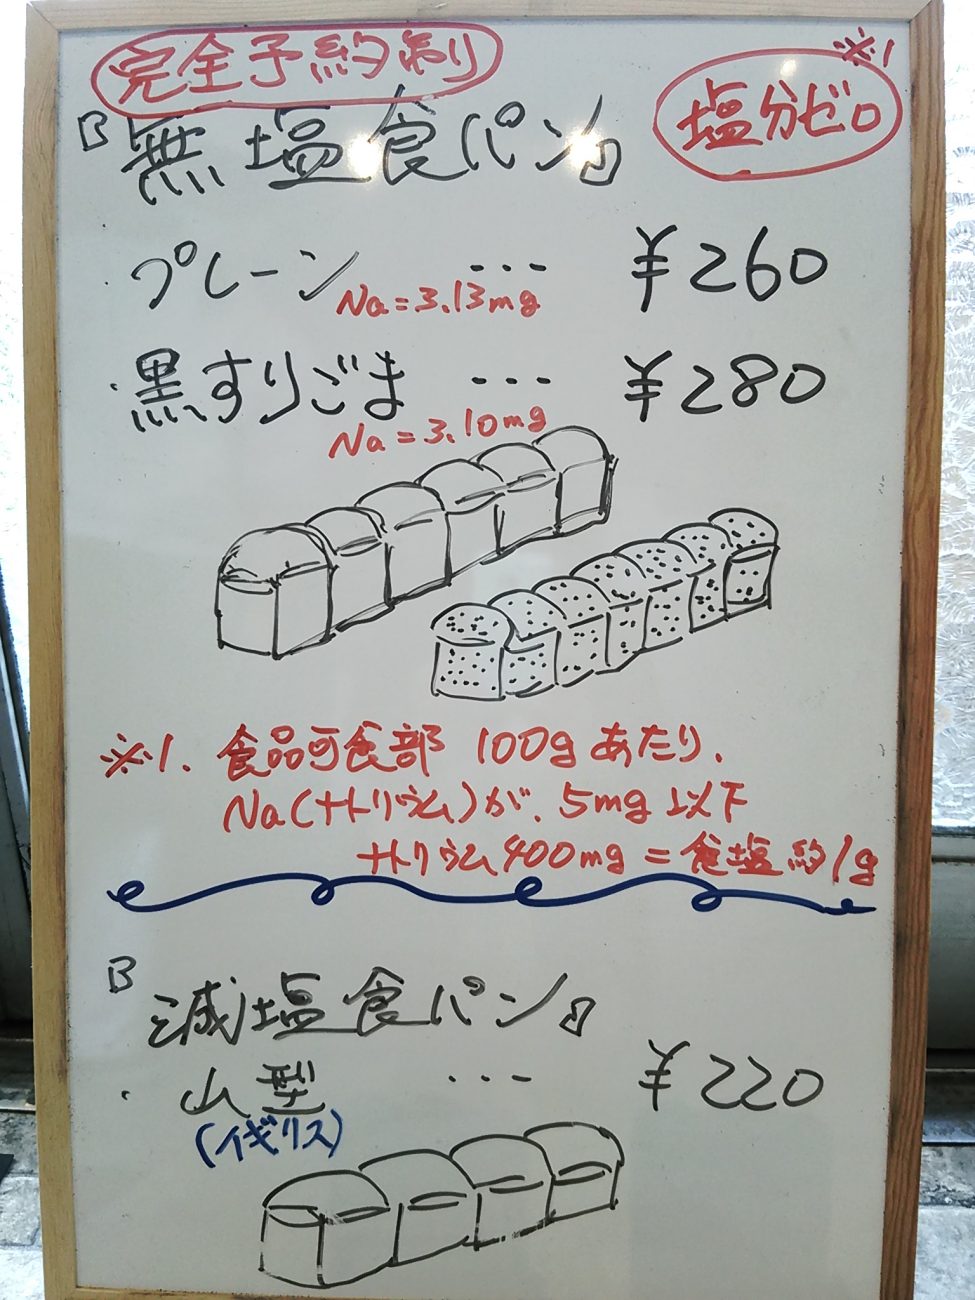 完全予約制
※1
塩分ゼロ
『無塩食パン』
プレーン ･･･ ¥260
Na=3.13mg
・黒すりごま ･･･ ¥280
Na=3.10mg
※1. 食品可食部 100gあたり、
Na(ナトリウム)が、5mg以下
ナトリウム400mg=食塩約1g
『減塩食パン』
・山型 ･･･ ¥220
(イギリス)